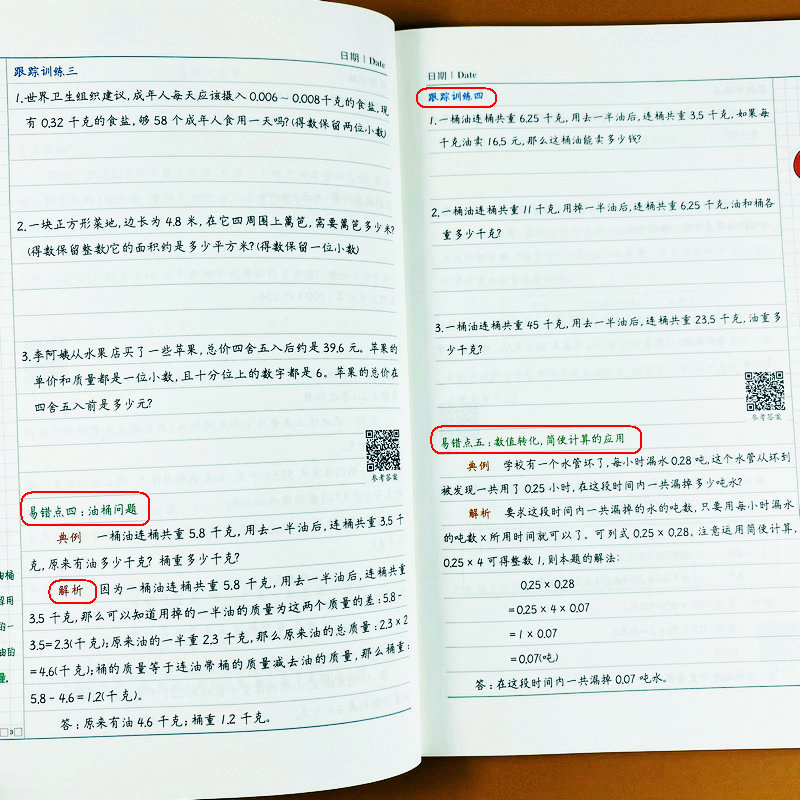 日期 | Date
跟踪训练三
1.世界卫生组织建议,成年人每天应该摄入 0.006～0.008千克的食盐,现
有 0.32 千克的食盐,够 58 个成年人食用一天吗?(得数保留两位小数)
2.一块正方形菜地,边长为 4.8 米,在它四周围上篱笆,需要篱笆多少米?
(得数保留整数)它的面积约是多少平方米?(得数保留一位小数)
3.李阿姨从水果店买了一些苹果,总价四舍五入后约是 39.6 元。苹果的
单价和质量都是一位小数,且十分位上的数字都是 6。苹果的总价在
四舍五入前是多少元?
参考答案
易错点四:油桶问题
典例 一桶油连桶共重 5.8 千克,用去一半油后,连桶共重 3.5 千
克,原来有油多少千克?桶重多少千克?
解析 因为一桶油连桶共重 5.8 千克,用去一半油后,连桶共重
3.5 千克,那么可以知道用掉的一半油的质量为这两个质量的差:5.8-
3.5=2.3(千克);原来油的一半重 2.3 千克,那么原来油的总质量:2.3×2
=4.6(千克);桶的质量等于连油带桶的质量减去油的质量,那么桶重:
5.8-4.6=1.2(千克)。
答:原来有油 4.6 千克;桶重 1.2 千克。
油桶
用
的一
油的
量.
3
日期 | Date
跟踪训练四
1.一桶油连桶共重 6.25 千克,用去一半油后,连桶共重 3.5 千克,如果每
千克油卖 16.5 元,那么这桶油能卖多少钱?
2.一桶油连桶共重 11 千克,用掉一半油后,连桶共重 6.25 千克,油和桶各
重多少千克?
3.一桶油连桶共重 45 千克,用去一半油后,连桶共重 23.5 千克,油重多
少千克?
参考答案
易错点五:数值转化,简便计算的应用
典例 学校有一个水管坏了,每小时漏水 0.28 吨,这个水管从坏到
被发现一共用了 0.25 小时,在这段时间内一共漏掉多少吨水?
解析 要求这段时间内一共漏掉的水的吨数,只要用每小时漏水
的吨数×所用时间就可以了。可列式 0.25×0.28,注意运用简便计算,
0.25×4 可得整数 1,则本题的解法:
0.25×0.28
=0.25×4×0.07
=1×0.07
=0.07(吨)
答:在这段时间内一共漏掉 0.07 吨水。